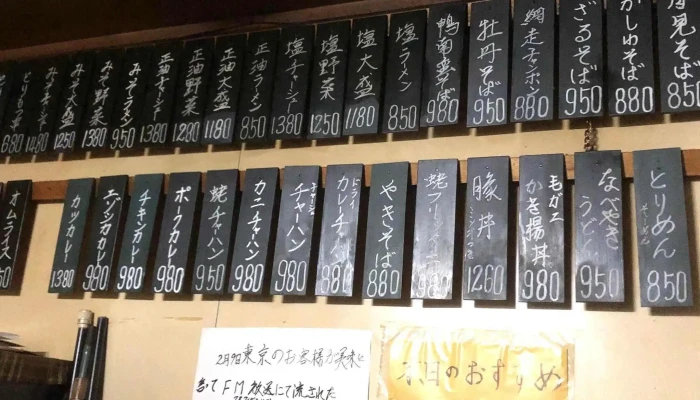 月見そば 850
かしゅそば 880
ざるそば 950
網走チャンポン 880
牡丹そば 950
鴨南蛮そば 980
塩ラーメン 850
塩大盛 1180
塩野菜 1250
塩チャーシュー 1380
正油ラーメン 850
正油大盛 1180
正油野菜 1280
正油チャーシュー 1380
みそラーメン 950
みそ野菜 1380
みそ大盛 1250
みそチャーシュー 1480
680
とりめん 850
なべやきうどん 950
モガエかき揚丼 980
豚丼 1260
980
やきそば 880
ドライカレーチャハン 880
チャーシューチャハン 980
カニチャハン 980
蛯チャハン 950
ポークカレー 980
チキンカレー 980
エゾシカカレー 980
カツカレー 1380
オムライス 50
2月9日東京のお客様が来来に
FM放送にて流された
本日のおすすめ